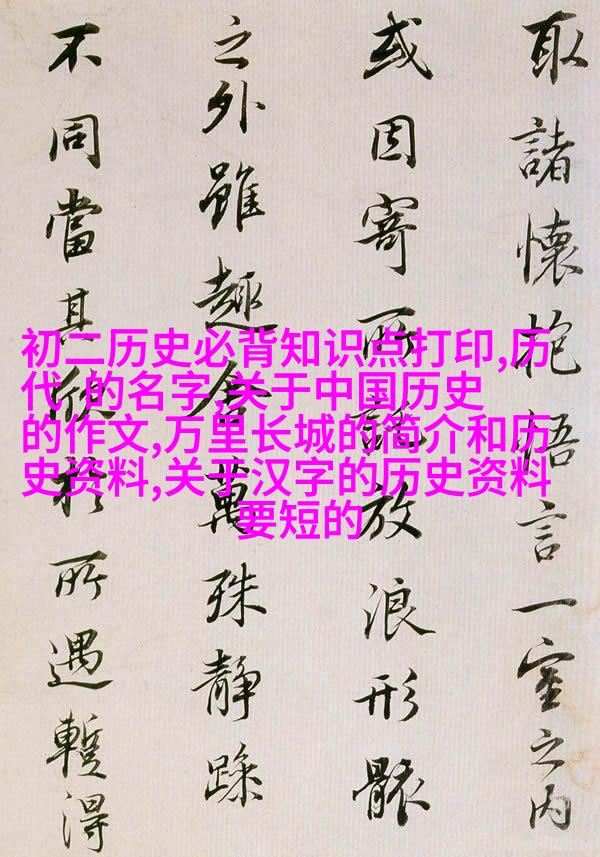 取諸懷抱悟言一室之内
或因寄所託放浪形骸
之外雖趣舍萬殊静躁
不同當其欣於所遇暫得
初二历史必背知识点打印,历
代 的名字,关于中国历史
的作文,万里长城的简介和历
史资料,关于汉字的历史资料
要短的